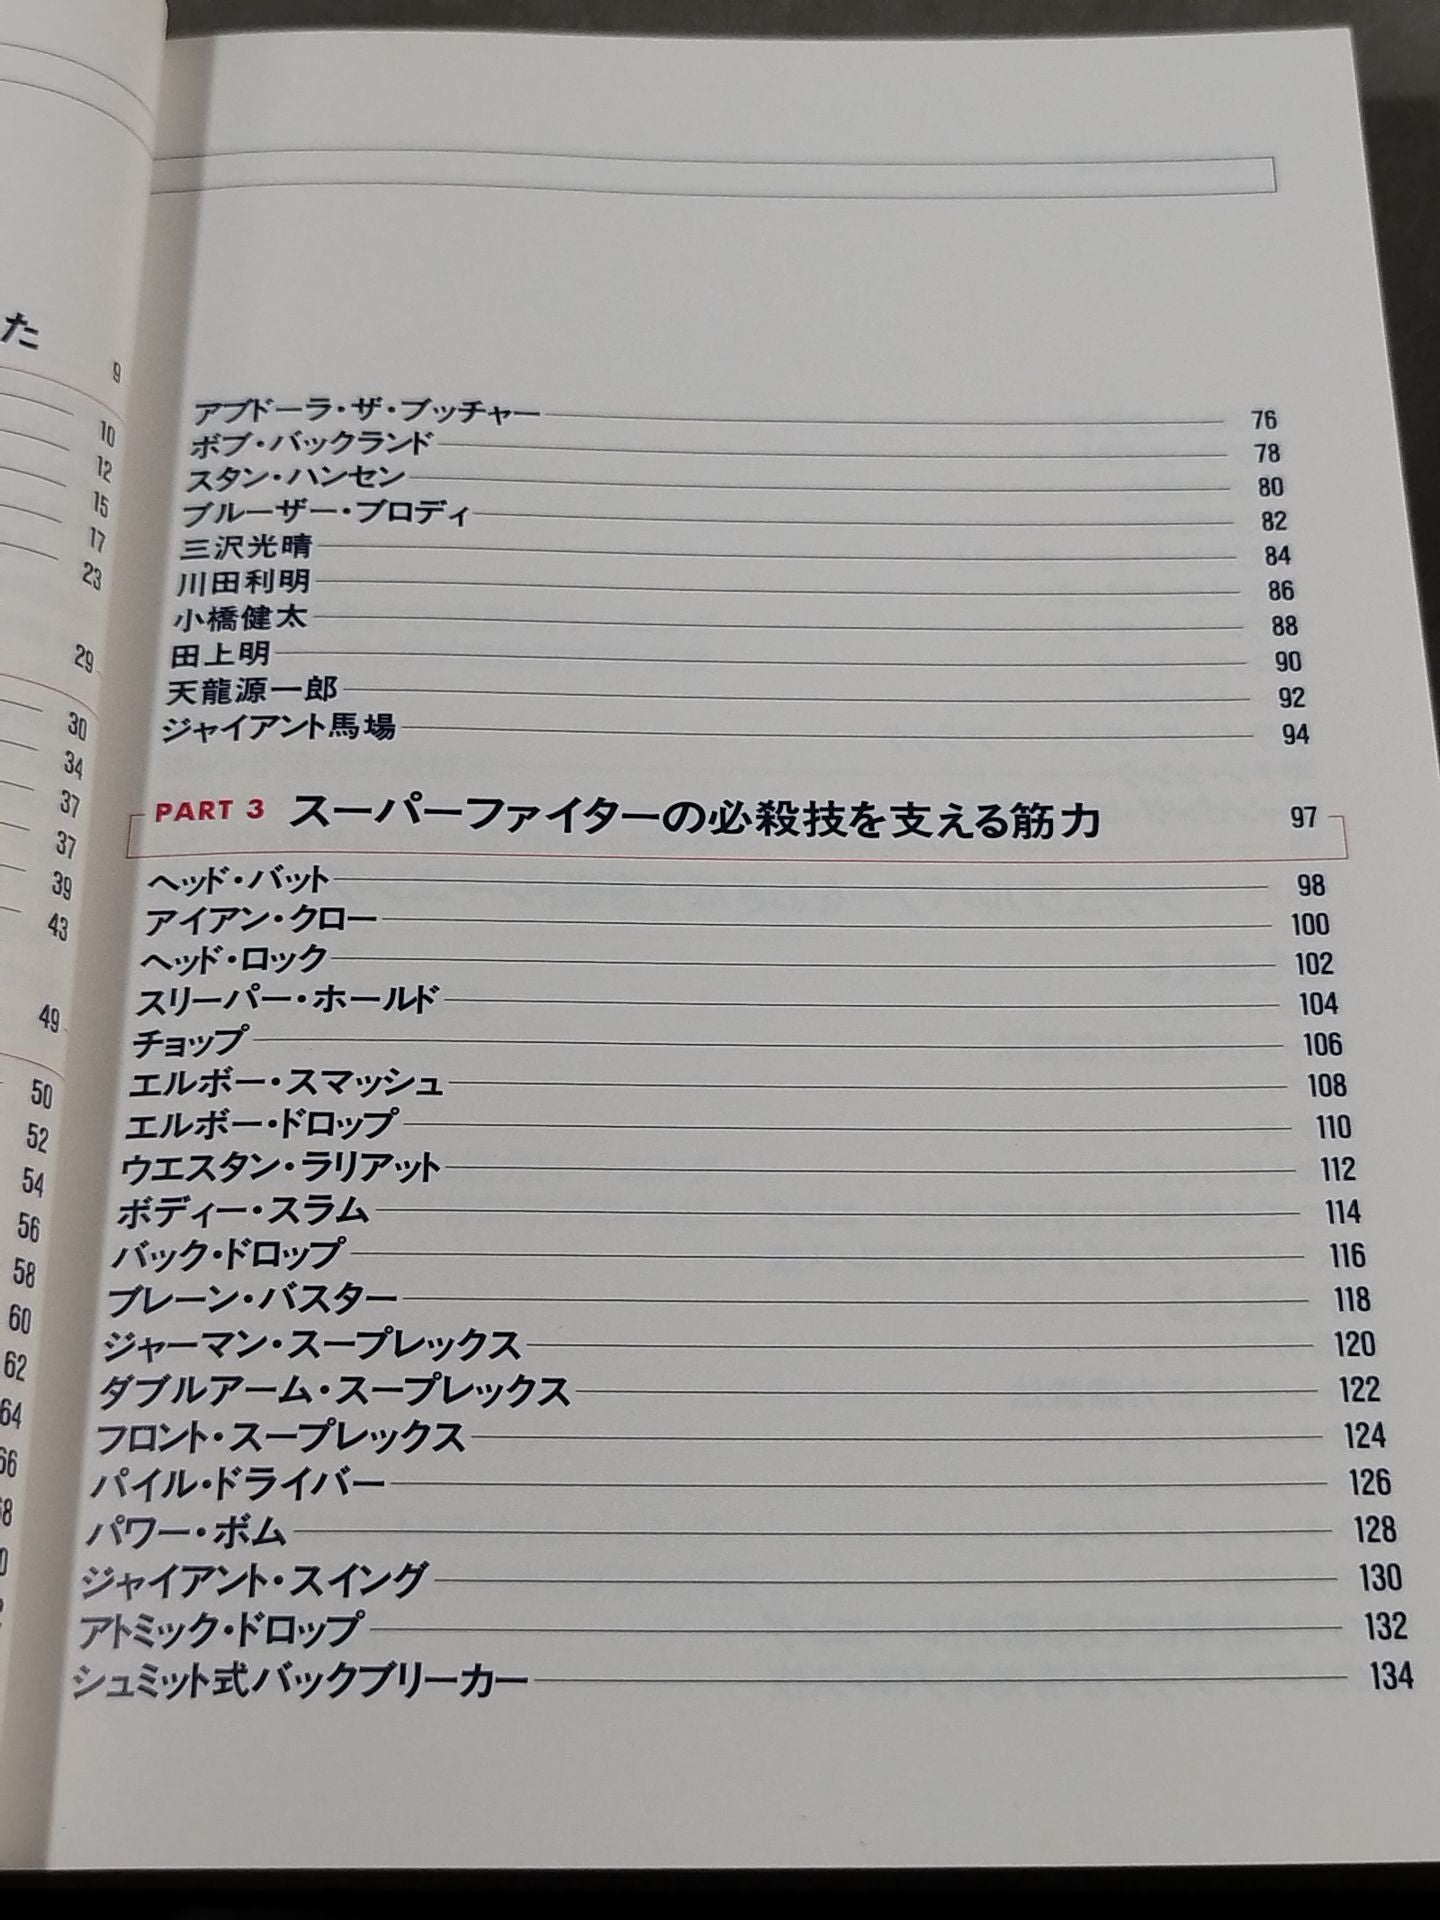 た
9
10
12
15
17
23
29
30
34
37
37
39
43
49
50
52
54
56
58
60
62
64
66
アブドーラ・ザ・ブッチャー 76
ボブ・バックランド 78
スタン・ハンセン 80
ブルーザー・ブロディ 82
三沢光晴 84
川田利明 86
小橋健太 88
田上明 90
天龍源一郎 92
ジャイアント馬場 94
PART 3 スーパーファイターの必殺技を支える筋力 97
ヘッド・バット 98
アイアン・クロー 100
ヘッド・ロック 102
スリーパー・ホールド 104
チョップ 106
エルボー・スマッシュ 108
エルボー・ドロップ 110
ウエスタン・ラリアット 112
ボディー・スラム 114
バック・ドロップ 116
ブレーン・バスター 118
ジャーマン・スープレックス 120
ダブルアーム・スープレックス 122
フロント・スープレックス 124
パイル・ドライバー 126
パワー・ボム 128
ジャイアント・スイング 130
アトミック・ドロップ 132
シュミット式バックブリーカー 134